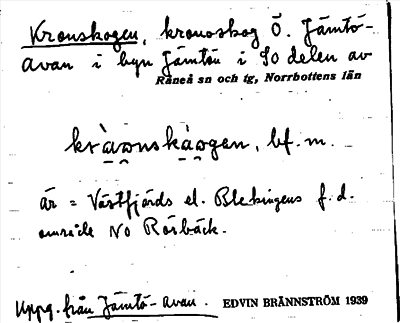 Kronskogen, kronoskog Ö. Jämtö-
avan i byn Jämtön i SO delen av
Råneå sn och tg, Norrbottens län
kràonskàogen, bf. m.
är = Västfjärds el. Blekingens f.d.
område NO Rörbäck.
Uppg. från Jämtö-avan. EDVIN BRÄNNSTRÖM 1939